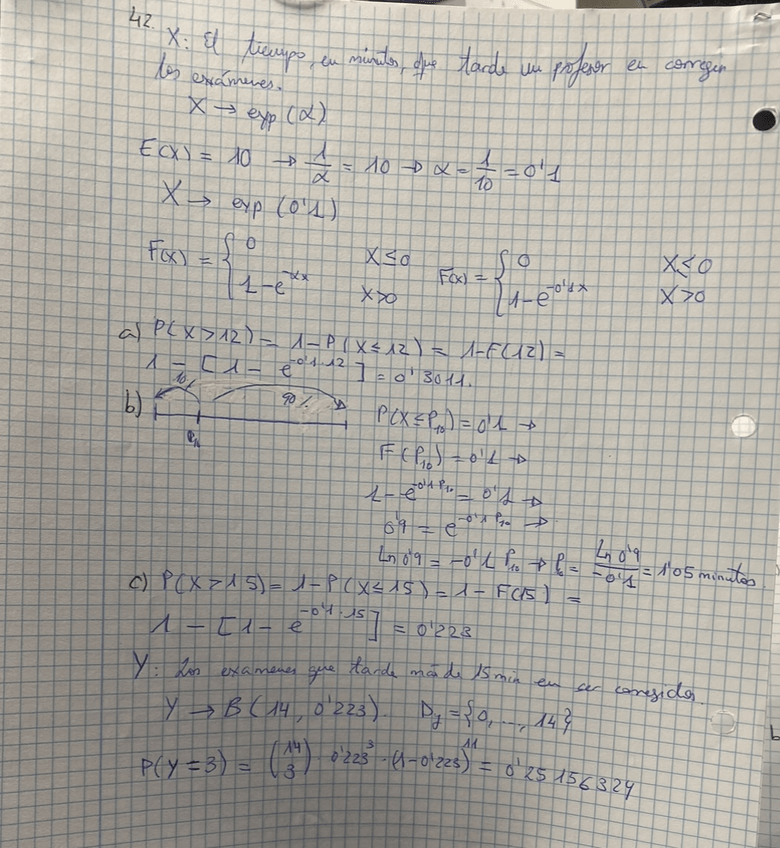 42.
X: El tiempo, en minutos, que tarda un profesor en corregir
los exámenes.
X → exp (α)
E(X) = 10 → 1/α = 10 → α = 1/10 = 0'1
X → exp (0'1)
F(x) = { 0 X≤0 F(x) = { 0 X≤0
1-e^-αx X>0 1-e^-0'1x X>0
a) P(X>12) = 1-P(X≤12) = 1-F(12) =
1 - [1 - e^-0'1·12] = 0'3011.
b) 10 90%. P10
P(X≤P10) = 0'1 →
F(P10) = 0'1 →
1-e^-0'1·P10 = 0'1 →
0'9 = e^-0'1·P10 →
Ln 0'9 = -0'1 P10 → P10 = Ln 0'9/-0'1 = 1'05 minutos.
c) P(X>15) = 1-P(X≤15) = 1-F(15) =
1 - [1 - e^-0'1·15] = 0'223
Y: Los examenes que tarda más de 15 min en ser corregidos.
Y → B(14, 0'223). Dy = {0, ..., 14}
P(Y=3) = (14 3) · 0'223^3 · (1-0'223)^11 = 0'25156324